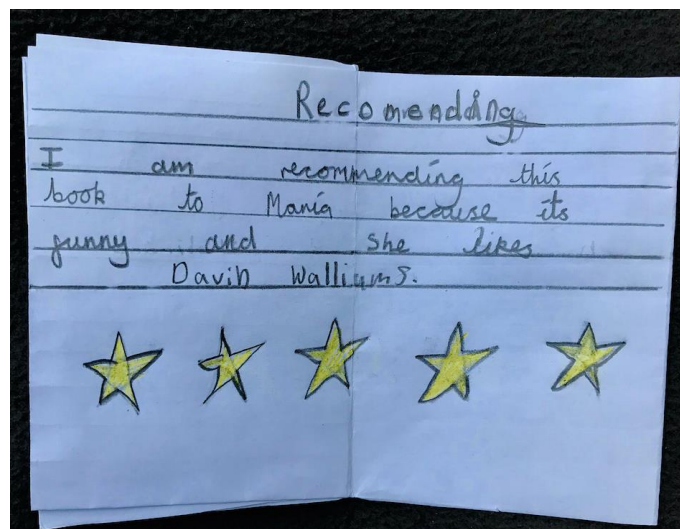 Recomending
I am recommending this
book to Maria because its
funny and she likes
David Walliums.